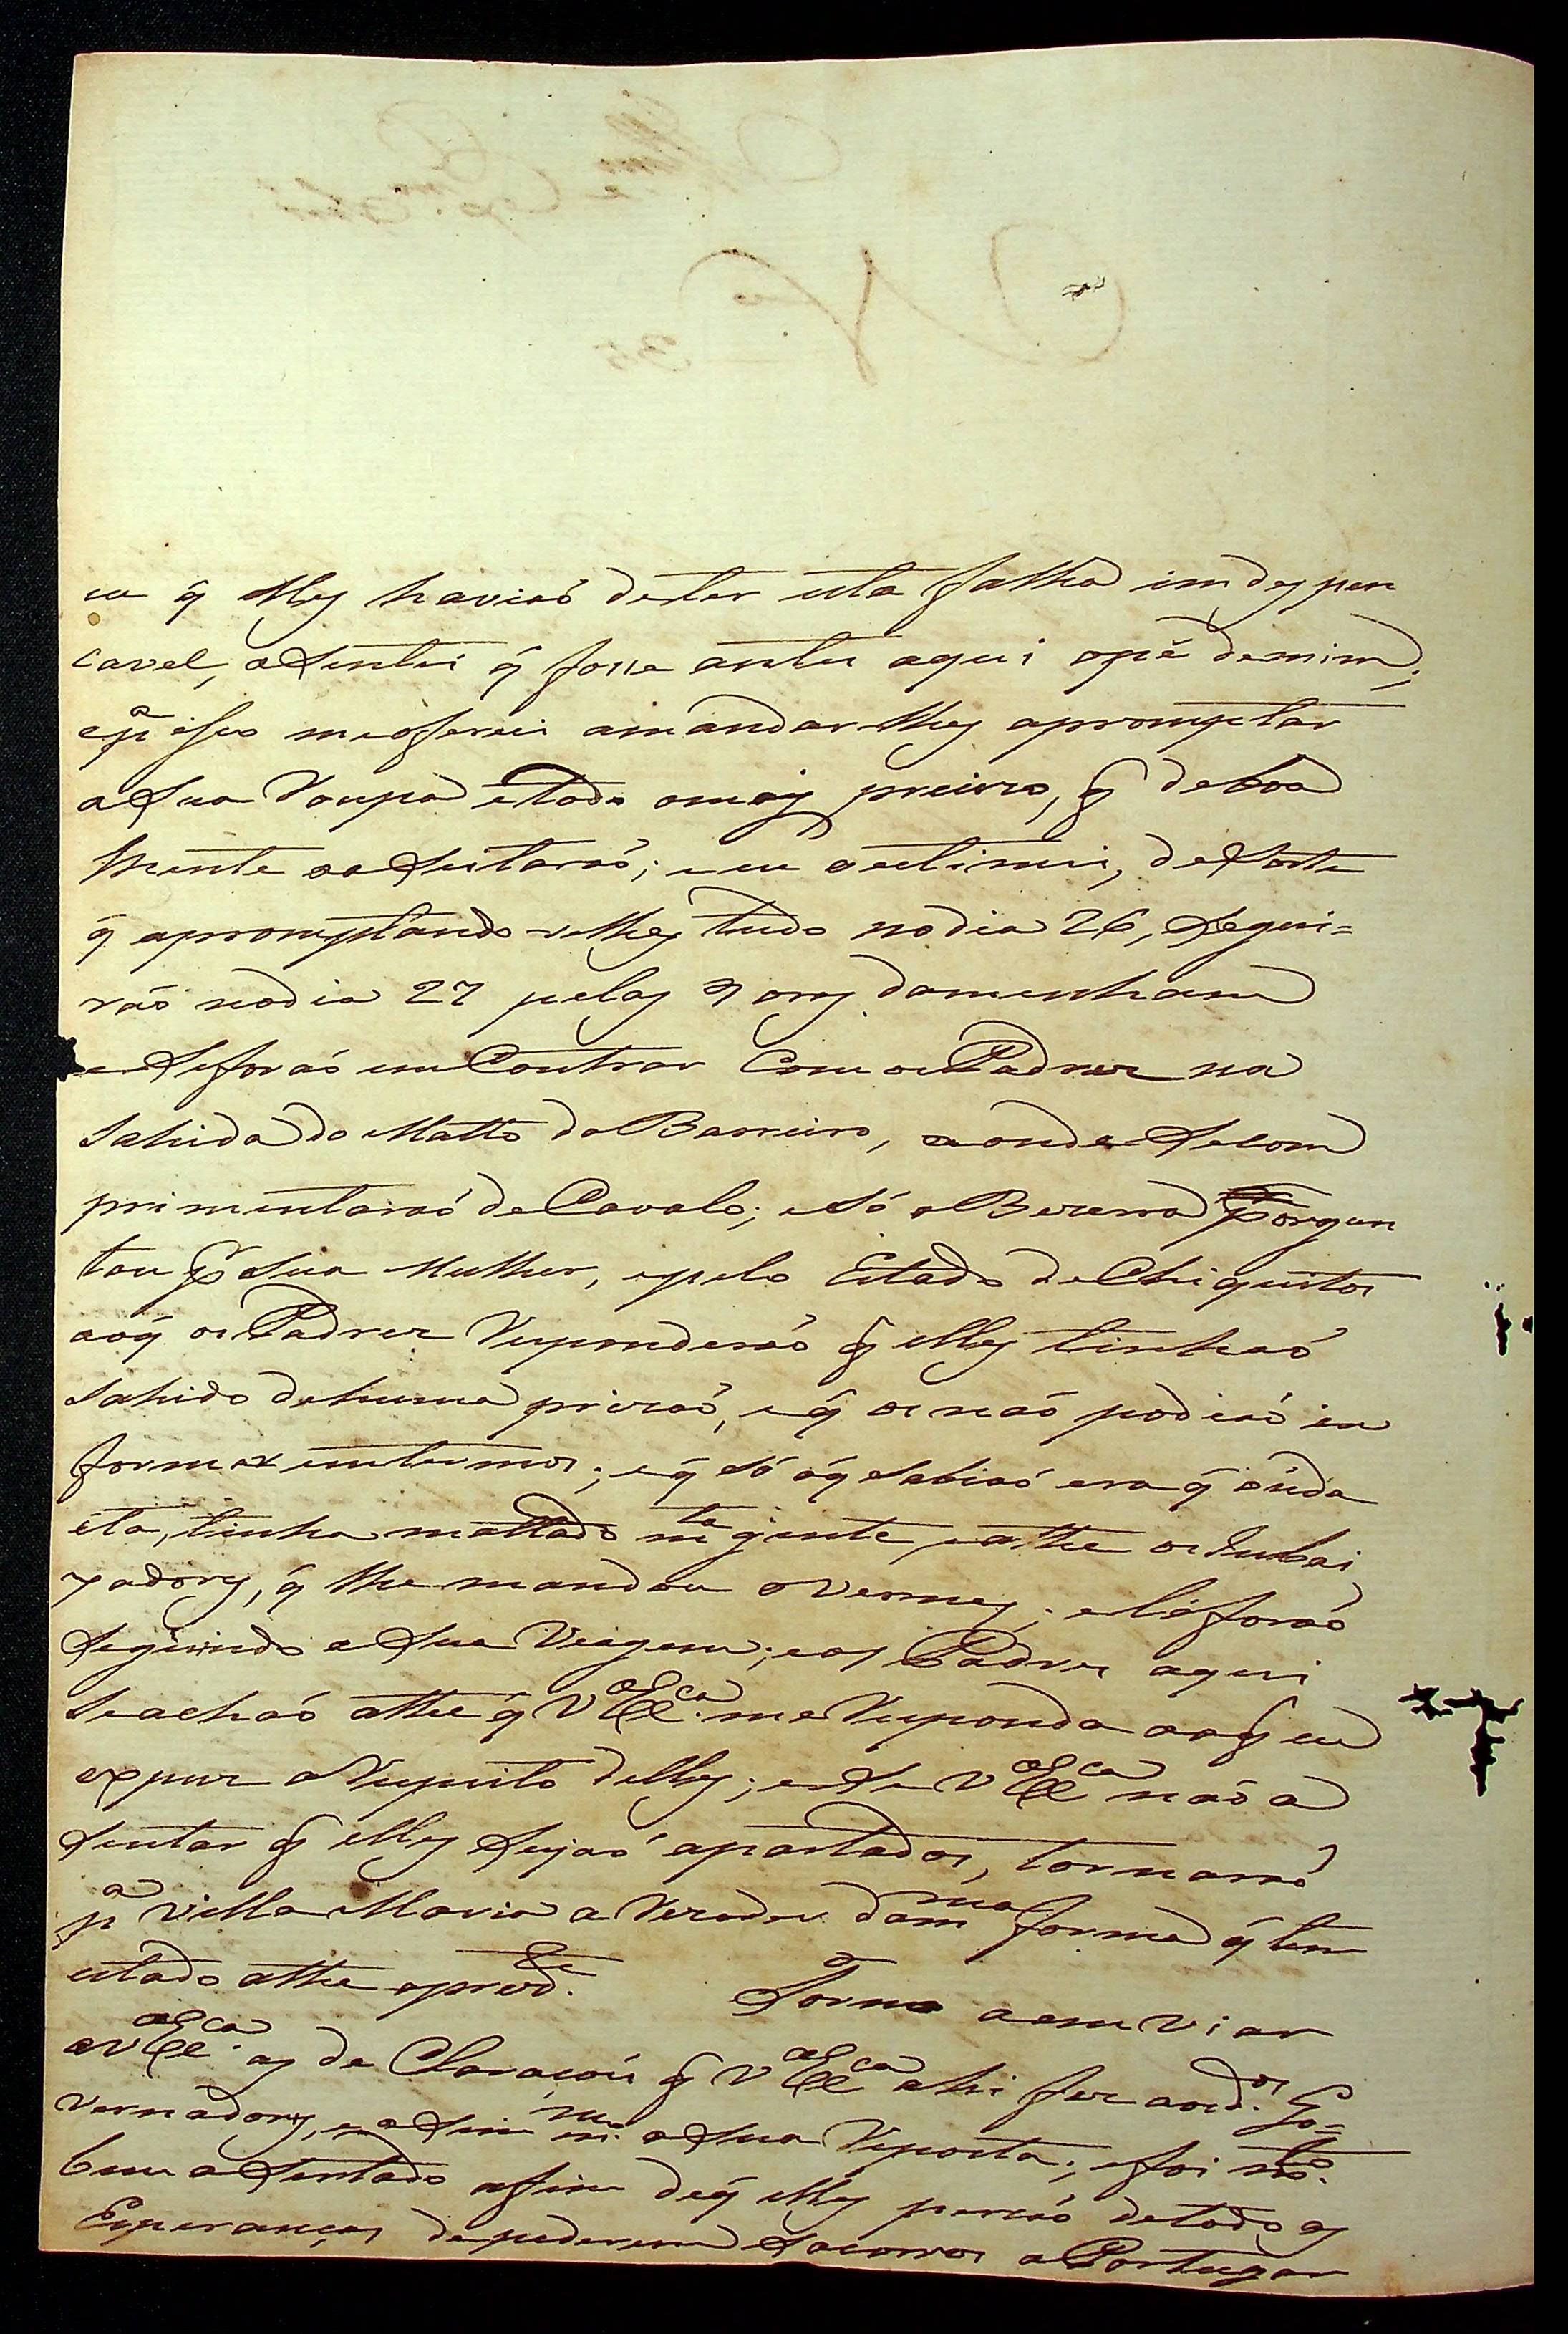 eu q̃ elles haviaó deter esta falha indespen
cavel, asentei q̃ fosse antes aqui opé demim;
ep.ª isso meofereci amandarlhes apromptar
asua Roupa etodo omais preciso, q̃ deboa
mente oaseitaraó; eeu oestimei, desorte
q̃ apromptandoselhes tudo nodia 26, segui=
raó nodia 27 pelas 7 oras damenham
eseforaó emContrar Com os Padres na
Sahida do Matto do Barreiro, aonde secom
primentaraó deCavalo; esó oBezerra porgun
tou p.r sua Mulher, epelo Estado de Chiquitos
aoq̃ os Padres Responderaó q̃ elles tinhaó
sahido dehuma prizaó, eq̃ os naó podiaó in
formar emtermos; eq̃ só oq̃ sabiaó era q̃ ainda
esta, tinha mattado m.ta gente, eathe os Inbai
xadores, q̃ lhe mandou oVermes; elá foraó
seguindo asua Viagem; eos Padres aqui
seachaó athe q̃ V Ex.ca me Responda aoq̃ eu
expus aRespeito delles; ese V Ex.ca naó a
sentar q̃ elles sejaó apartados, tornaraó
p.ª Villa Maria a Rezedir dam.ma forma q̃ tem
estado athe oprez.te. Torno aemviar
aV Ex.ca as de Claraçois q̃ V Ex.ca ahi fez aosd.os Go=
vernadores, easim m.mo asua Reposta; efoi m.to
bem asentado afim deq̃ elles percaó detodo as
Esperanças depederem Socorros aPortugar